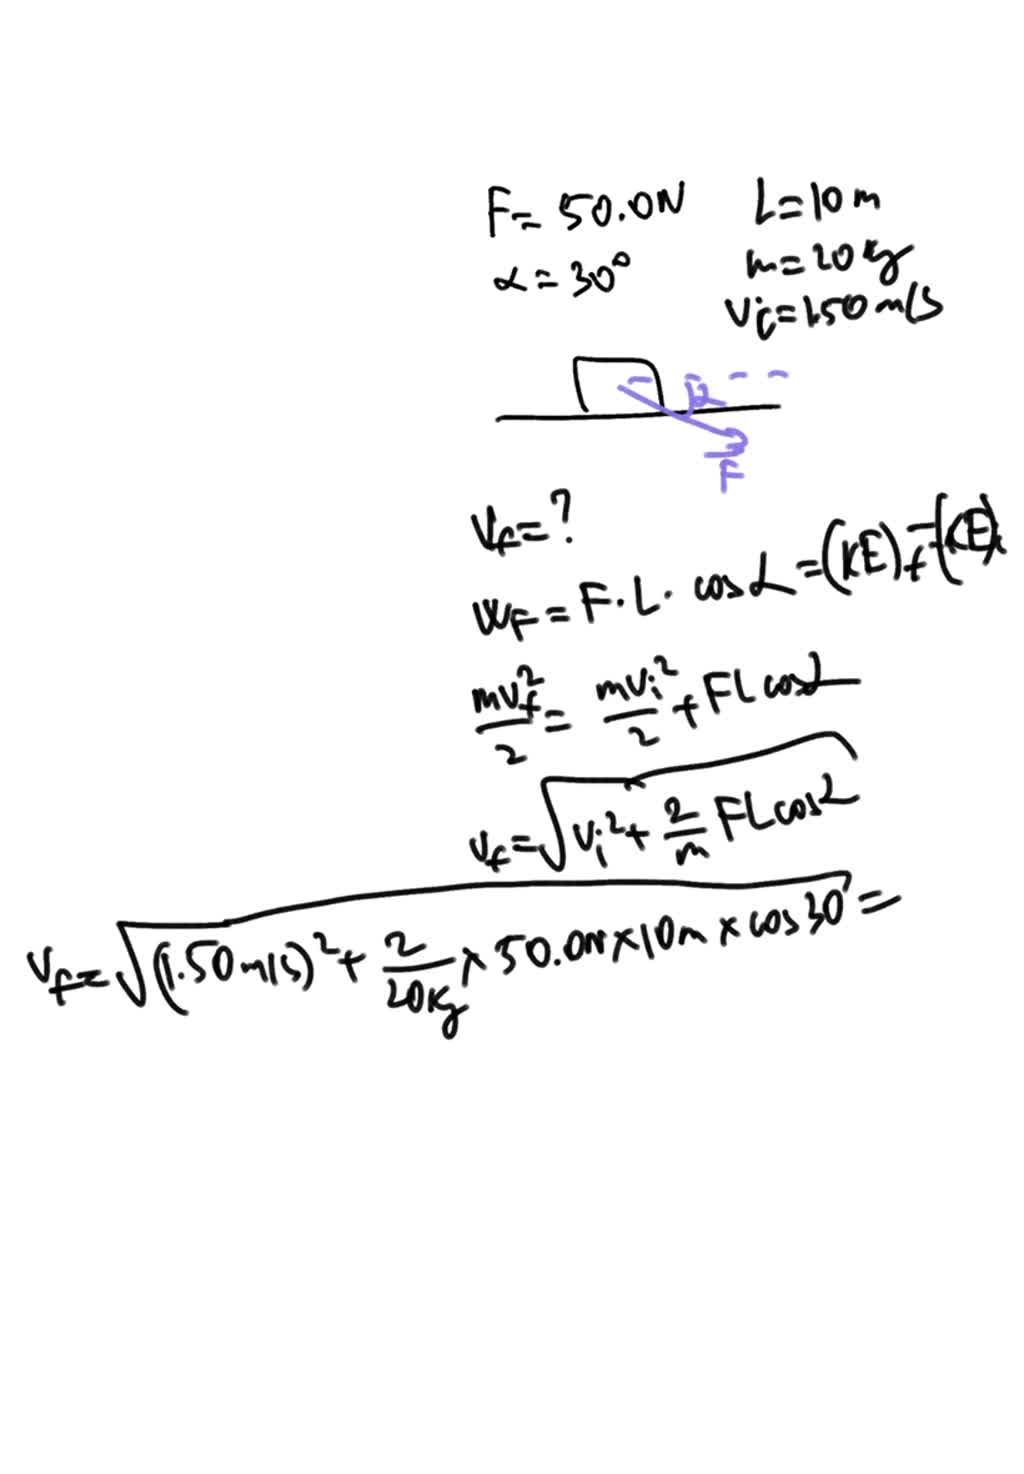 F = 50.0N L = 10 m
α = 30° m = 20 kg
vi = 1.50 m/s
α
F
vf = ?
WF = F · L · cos α = (KE)f - (KE)i
mvf²/2 = mvi²/2 + FL cos α
vf = √(vi² + 2/m FL cos α)
vf = √((1.50 m/s)² + 2/20kg × 50.0N × 10m × cos 30) =